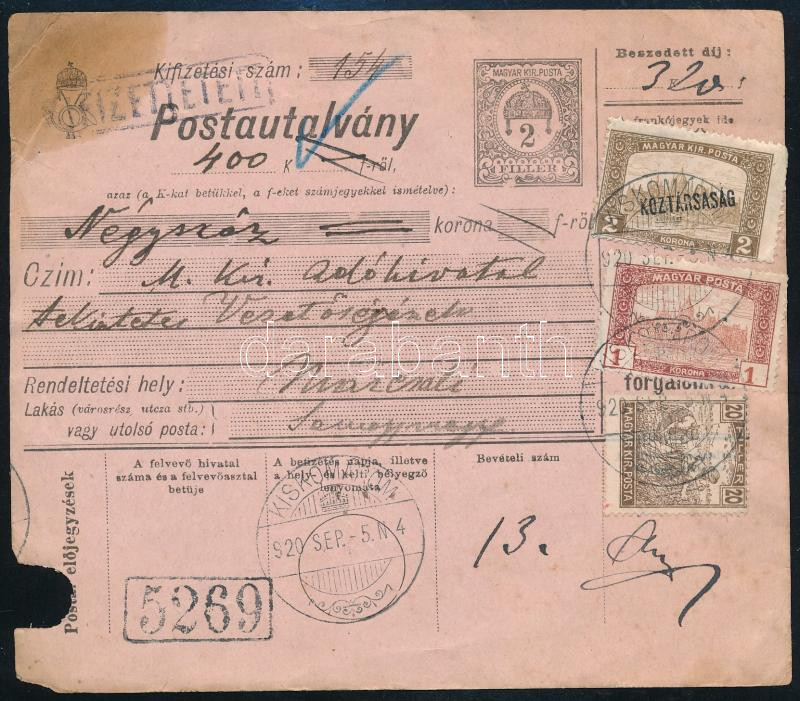 Kifizetési szám: 154
KIFIZETTETETT
Postautalvány
400 K f-ről,
azaz (a K-kat betükkel, a f-eket számjegyekkel ismételve):
Négyszáz korona f-ről
Czim: M. Kir. Adóhivatal
tekintetes Vezetőségének
Rendeltetési hely:
Lakás (városrész, utcza stb.)
vagy utolsó posta:
MAGYAR KIR. POSTA
2
FILLER
Beszedett díj:
320
MAGYAR KIR. POSTA
KÖZTÁRSASÁG
2 KORONA 2
920 SEP.-5.N
MAGYAR POSTA
1 KORONA 1
20 FILLER 20
MAGYAR KIR. POSTA
darabanth
Postai előjegyzések
A felvevő hivatal
száma és a felvevőasztal
betüje
A befizetés napja, illetve
a hely- és kelti bélyegző
lenyomata
Bevételi szám
920 SEP.-5.N 4
13.
5269